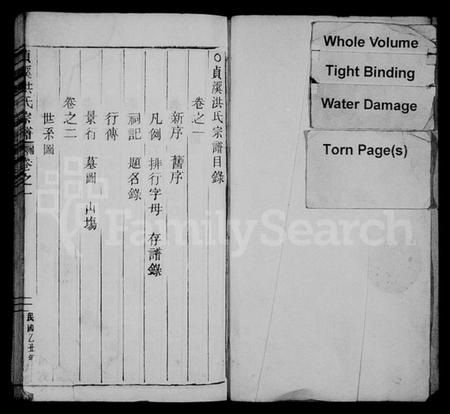 ○貞溪洪氏宗譜目錄
卷之一
新序 舊序
凡例 排行字母 存譜錄
祠記 題名錄
行傳
景石 墓圖 山塲
卷之二
世系圖
貞溪洪氏宗譜
卷之一
民國乙丑年
Whole Volume
Tight Binding
Water Damage
Torn Page(s)
FamilySearch